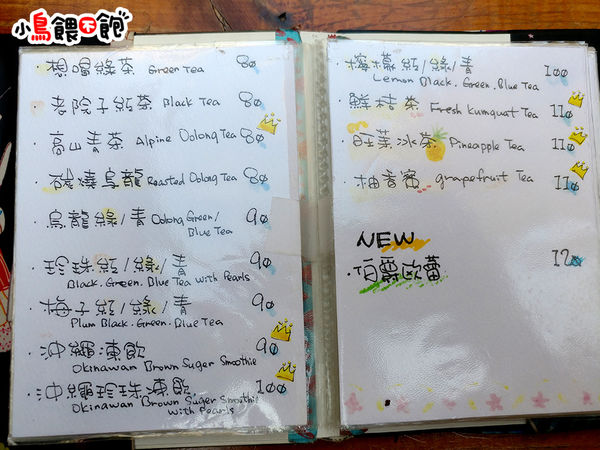 小鳥餵不飽
·想喝綠茶 Green Tea 80
·老院子紅茶 Black Tea 80
·高山青茶 Alpine Oolong Tea 80
·碳燒烏龍 Roasted Oolong Tea 80
·烏龍綠/青 Oolong Green/
Blue Tea 90
·珍珠紅/綠/青 90
Black.Green.Blue Tea with Pearls
·梅子紅/綠/青 90
Plum Black.Green.Blue Tea
·沖繩凍飲 90
Okinawan Brown Suger Smoothie
·沖繩珍珠凍飲 100
Okinawan Brown Suger Smoothie
with Pearls
·檸檬紅/綠/青 100
Lemon Black.Green.Blue Tea
·鮮桔茶 Fresh Kumquat Tea 110
·旺萊冰茶 Pineapple Tea 110
·柚香蜜 grapefruit Tea 110
NEW
·伯爵歐蕾 120